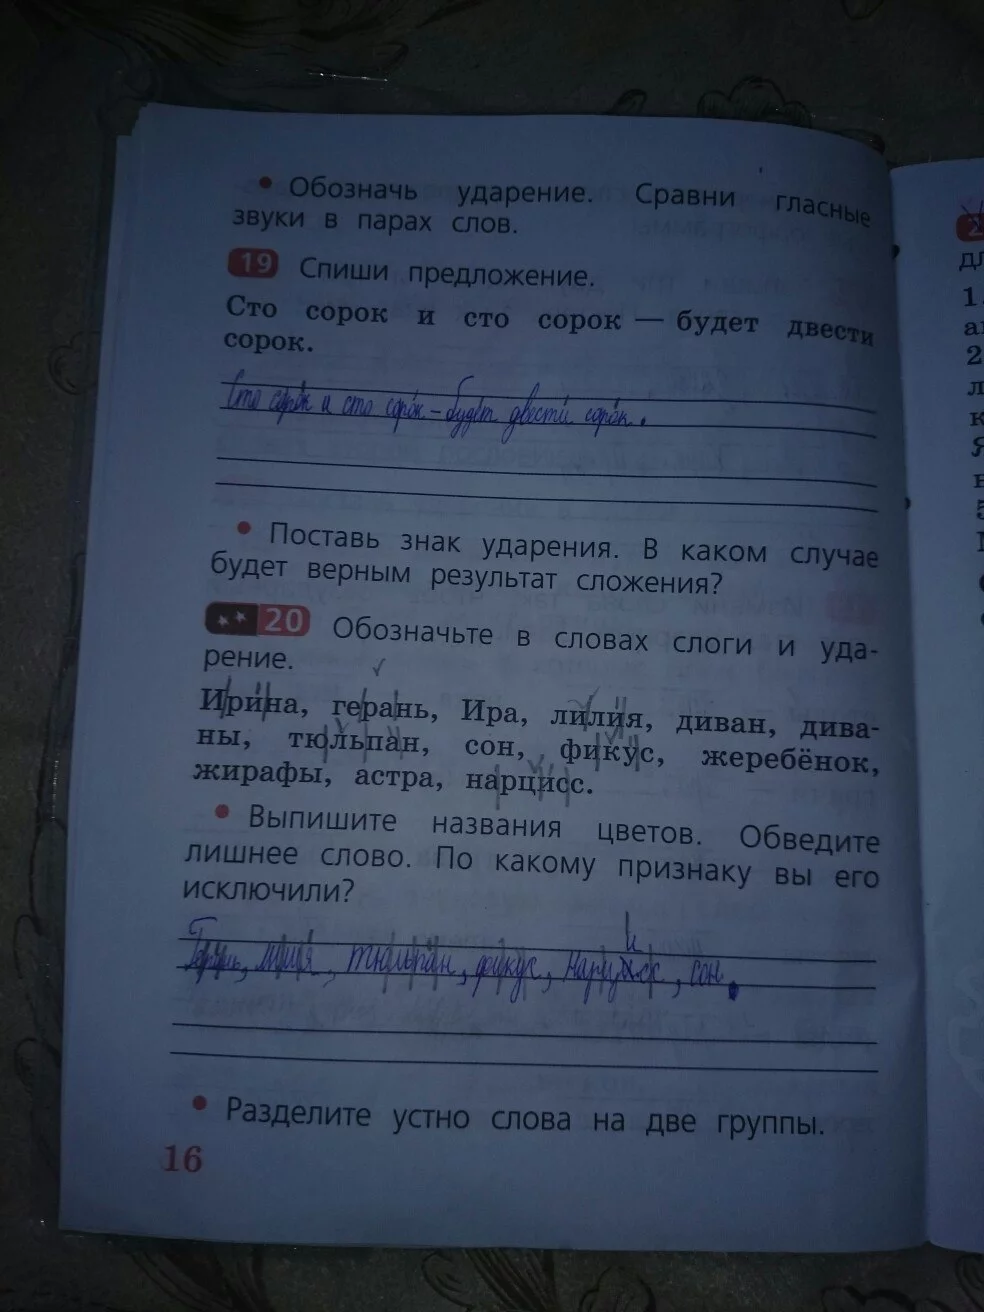 • Обозначь ударение. Сравни гласные
звуки в парах слов.
19 Спиши предложение.
Сто сорок и сто сорок — будет двести
сорок.
Сто соро́к и сто соро́к – буде́т двести́ соро́к.
• Поставь знак ударения. В каком случае
будет верным результат сложения?
20 Обозначьте в словах слоги и уда-
рение.
Ирина, герань, Ира, лилия, диван, дива-
ны, тюльпан, сон, фикус, жеребёнок,
жирафы, астра, нарцисс.
• Выпишите названия цветов. Обведите
лишнее слово. По какому признаку вы его
исключили?
лилия, тюльпан, фикус, сон.
• Разделите устно слова на две группы.
16
2
1.
2
5